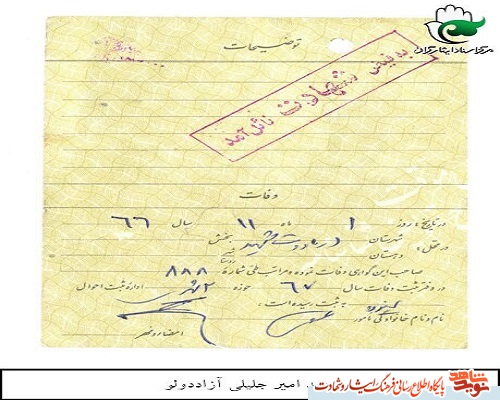 مرکز اسناد ایثارگران
توضیحات
به فیض شهادت نائل آمد
وفات
در تاریخ: روز ۱ ماه ۱۱ سال ۶۶
در محل: شهرستان بخش
دهستان
صاحب این گواهی وفات نموده و مراتب طی شماره ۸۸۸
در دفتر ثبت وفات سال ۶۷ حوزه ۲ اداره ثبت احوال
به ثبت رسیده است.
نام و نام خانوادگی مأمور امضاء و مهر
امیر جلیلی آزاددولو
نوید شاهد
پایگاه اطلاع رسانی فرهنگ ایثار و شهادت